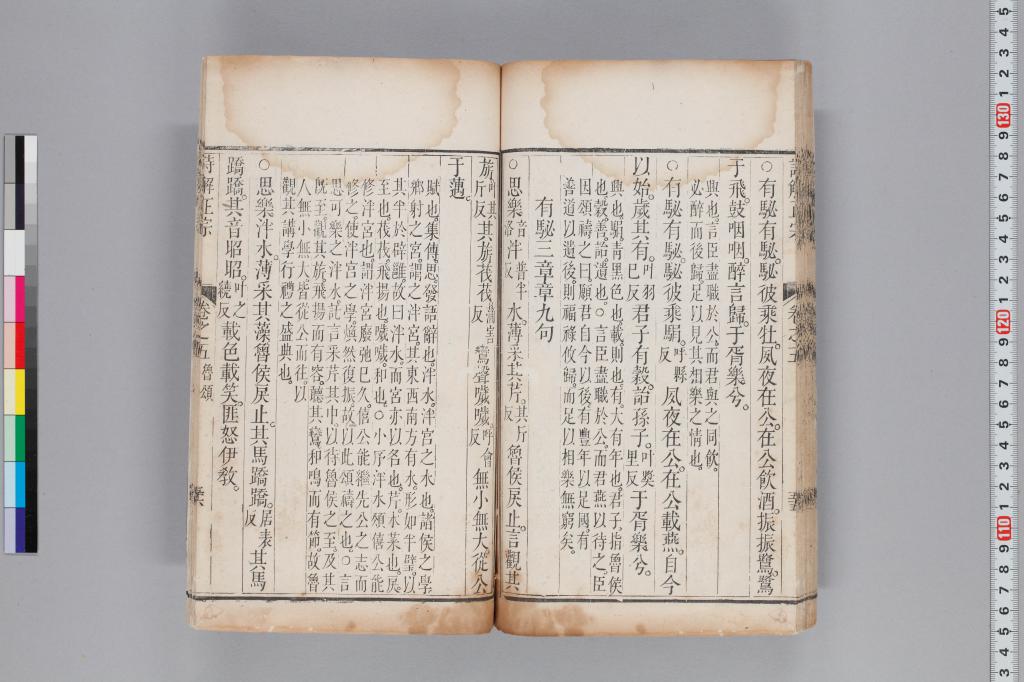 ○有駜有駜駜彼乘牡夙夜在公在公飲酒振振鷺鷺
于飛鼓咽咽醉言歸于胥樂兮
興也言臣盡職於公而君與之同飲
必醉而後歸足以見其相樂之情也
○有駜有駜駜彼乘駽呼縣反夙夜在公在公載燕自今
以始歲其有叶羽已反君子有穀詒孫子叶奬里反于胥樂兮
興也駽青黑色也載則也有大有年也君子指魯侯
也穀善詒遺也○言臣盡職於公而君燕以待之臣
因頌禱之曰願君自今以後有豐年以足國有
善道以遺後則福祿攸歸而足以相樂無窮矣
有駜三章章九句
○思樂音洛泮普半反水薄采其芹其斤反魯侯戾止言觀其
旂叶其斤反其旂茷茷蒲害反鸞聲噦噦呼會反無小無大從公
于邁
賦也集傳思發語辭也泮水泮宮之水也諸侯之學
鄉射之宮謂之泮宮其東西南方有水形如半璧以
其半於辟雝故曰泮水而宮亦以名也芹水菜也戾
至也茷茷飛揚也噦噦和也○小序泮水頌僖公能
修泮宮也謂泮宮廢弛已久僖公能繼先公之志而
修之使泮宮之學煥然復振故以此頌禱之也○言
思可樂之泮水託言采芹其中以待魯侯之至及其
旣至觀其旂飛揚而有容聽其鸞和鳴而有節故魯
人無小無大皆從公而往以
觀其講學行禮之盛典也
○思樂泮水薄采其藻魯侯戾止其馬蹻蹻居表反其馬
蹻蹻其音昭昭叶之繞反載色載笑匪怒伊教
詩解正宗 卷之五 魯頌